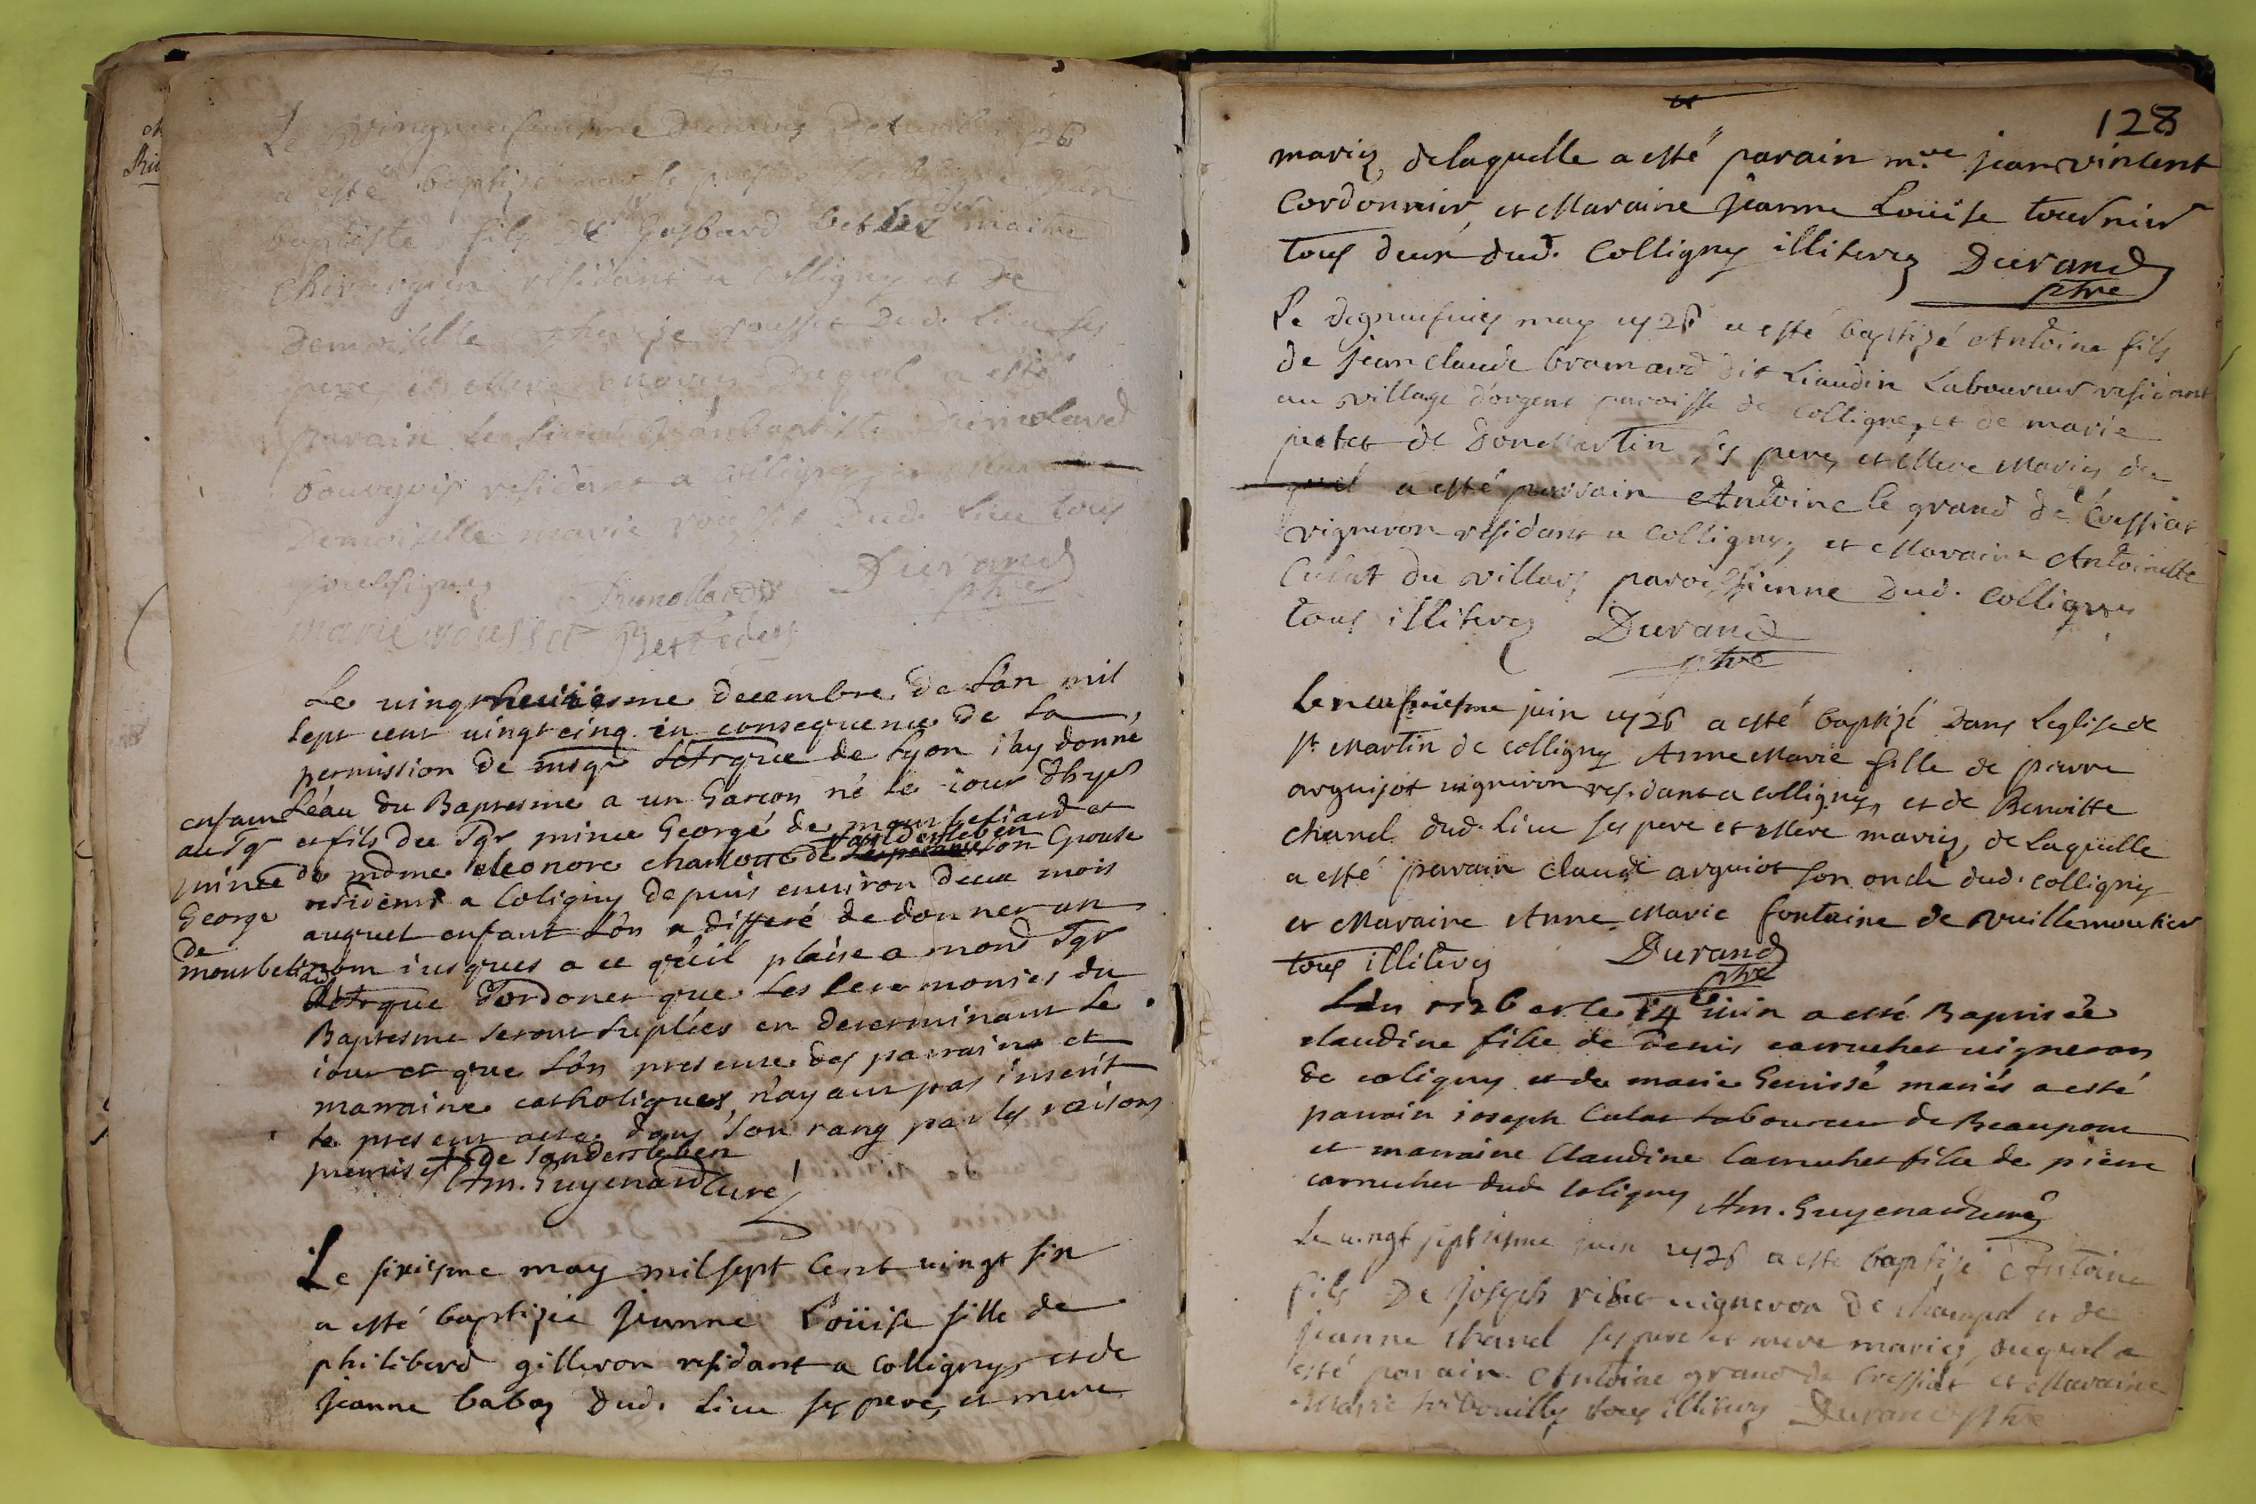 a esté baptizé
baptiste fils De maitre
chirurgien résidant a Colligny et De
Demoiselle rousset Dud. Lieu ses
pere et Mere mariez Duquel a esté
parain Le sieur Jean baptiste
bourgois residant a Colligny
Demoiselle marie rousset Dud. Lieu tous
soussignez Durand
ptre
marie rousset
Le vingt heuitiesme decembre de L'an mil
sept cent vingt cinq en consequence de La
permission de msgr de Lyon i'ay donné
L'eau du Baptesme a un Garcon né le iour d'hyer
enfant
au Sgr
prince
George
de
monbeliard
et fils du Sgr prince George de monbeliard et
de mdme eleonore charlotte de Sandersleben son Epouse
residents a Coligny depuis environ deux mois
auquel enfant L'on a differé de donner un
nom iusques a ce qu'il plaise a mond Sgr
d'ordoner que les Ceremonies du
Baptesme seront supléees en determinant le
iour et que L'on presente des parrains et
marraine catholiques, n'ayant pas inserit
le present acte dans son rang par les raisons
premises de Sandersleben
Am. Guyenard Curé
Le sixiesme may mil sept Cent vingt six
a esté baptizée Jeanne Loüise fille de
philiberd gilleron residant a Colligny et de
Jeanne babaz Dud. Lieu ses pere, et mere
128
mariez, delaquelle a esté parain mre jean vincent
Cordonnier et Maraine Jeanne Loüise tournier
tous deux dud. Colligny illiterez Durand
ptre
Le may 1726 a esté baptizé Antoine fils
de jean claude bramard dit Liaudin Laboureur residant
au village d'orgent paroisse de Colligny, et de marie
de Donsmartin ses pere, et Mere Mariez du
quel a esté parrain Antoine le grand de Cressiat
vigneron residant a Colligny, et Maraine Antoinette
Culat du villars paroissienne Dud. Colligny
tous illiterez Durand
ptre
Le neufviesme juin 1726 a esté baptizé Dans L'eglise de
st Martin de Colligny Anne Marie fille de pierre
arguijot vigneron residant a Colligny, et de Benoitte
chanel dud. Lieu ses pere et Mere mariez, de Laquelle
a esté parain claude arguiot son oncle dud. Colligny
et Maraine Anne Marie fontaine de Vuillemoutier
tous illiterez Durand
ptre
L'an 1726 et le 14 iuin a esté Baptisée
claudine fille de Denis carruchet vigneron
de coligny et de marie Genissé mariés a esté
parrain ioseph Culat laboureur de Beaupont
et marraine Claudine Carruchet fille de pierre
carruchet dud. Coligny Am. Guyenard curé
Le vingt septiesme juin 1726 a esté baptizé Antoine
fils De Joseph vigneron de et de
Jeanne chanel ses pere et mere mariez, duquel a
esté parain Antoine grand de Cressiat et Maraine
Marie tous illiterez Durand ptre